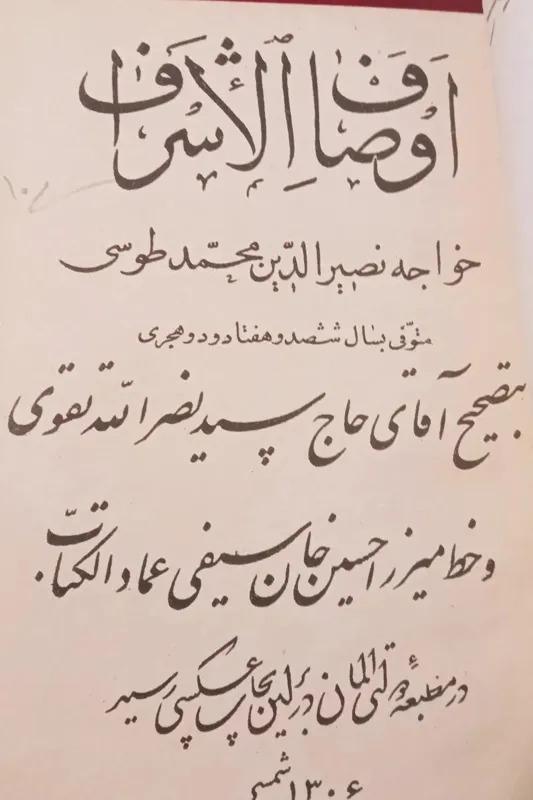 اَوْصافُ الْأَشْرافِ
خواجه نصیرالدّین محمّد طوسی
متوّفی بسال ششصد و هفتاد و دو هجری
بتصحیح آقای حاج سید نصرالله تقوی
و خط میرزا حسین خان سیفی عمادالکتاب
در مطبعهٔ دولتی آلمان در برلین بچاپ عکسی رسید
۱۳۰۶ شمسی